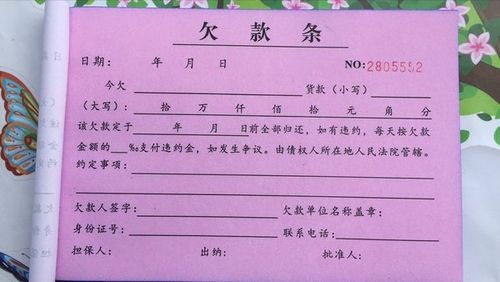 欠款条
日期： 年 月 日 NO:2805552
今欠 货款（小写）
（大写）： 拾 万 仟 佰 拾 元 角 分
该欠款定于 年 月 日前全部归还，如有违约，每天按欠款
金额的 ‰支付违约金，如发生争议。由债权人所在地人民法院管辖。
约定事项：
欠款人签字： 欠款单位名称盖章：
身份证号： 联系电话：
担保人： 出纳： 批准人：